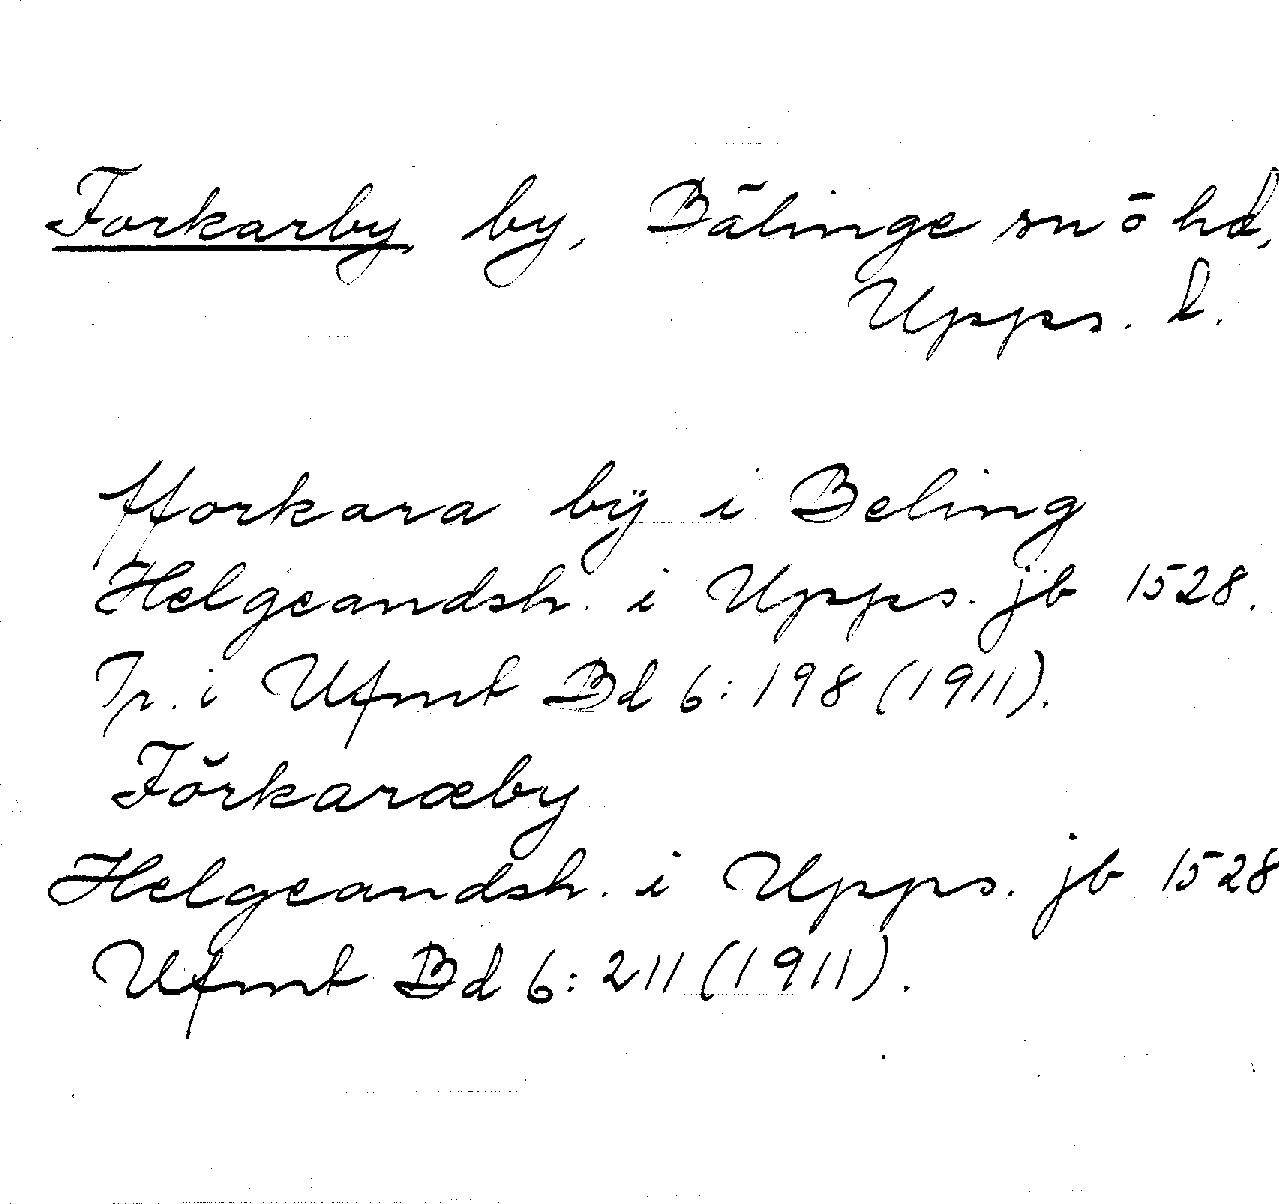 Forkarby by, Bälinge sn ō hd,
Upps. l.
fforkara bÿ i Beling
Helgeandsh. i Upps. jb 1528.
Tr. i Ufmt Bd 6: 198 (1911).
Förkaræby
Helgeandsh. i Upps. jb 1528
Ufmt Bd 6: 211 (1911).